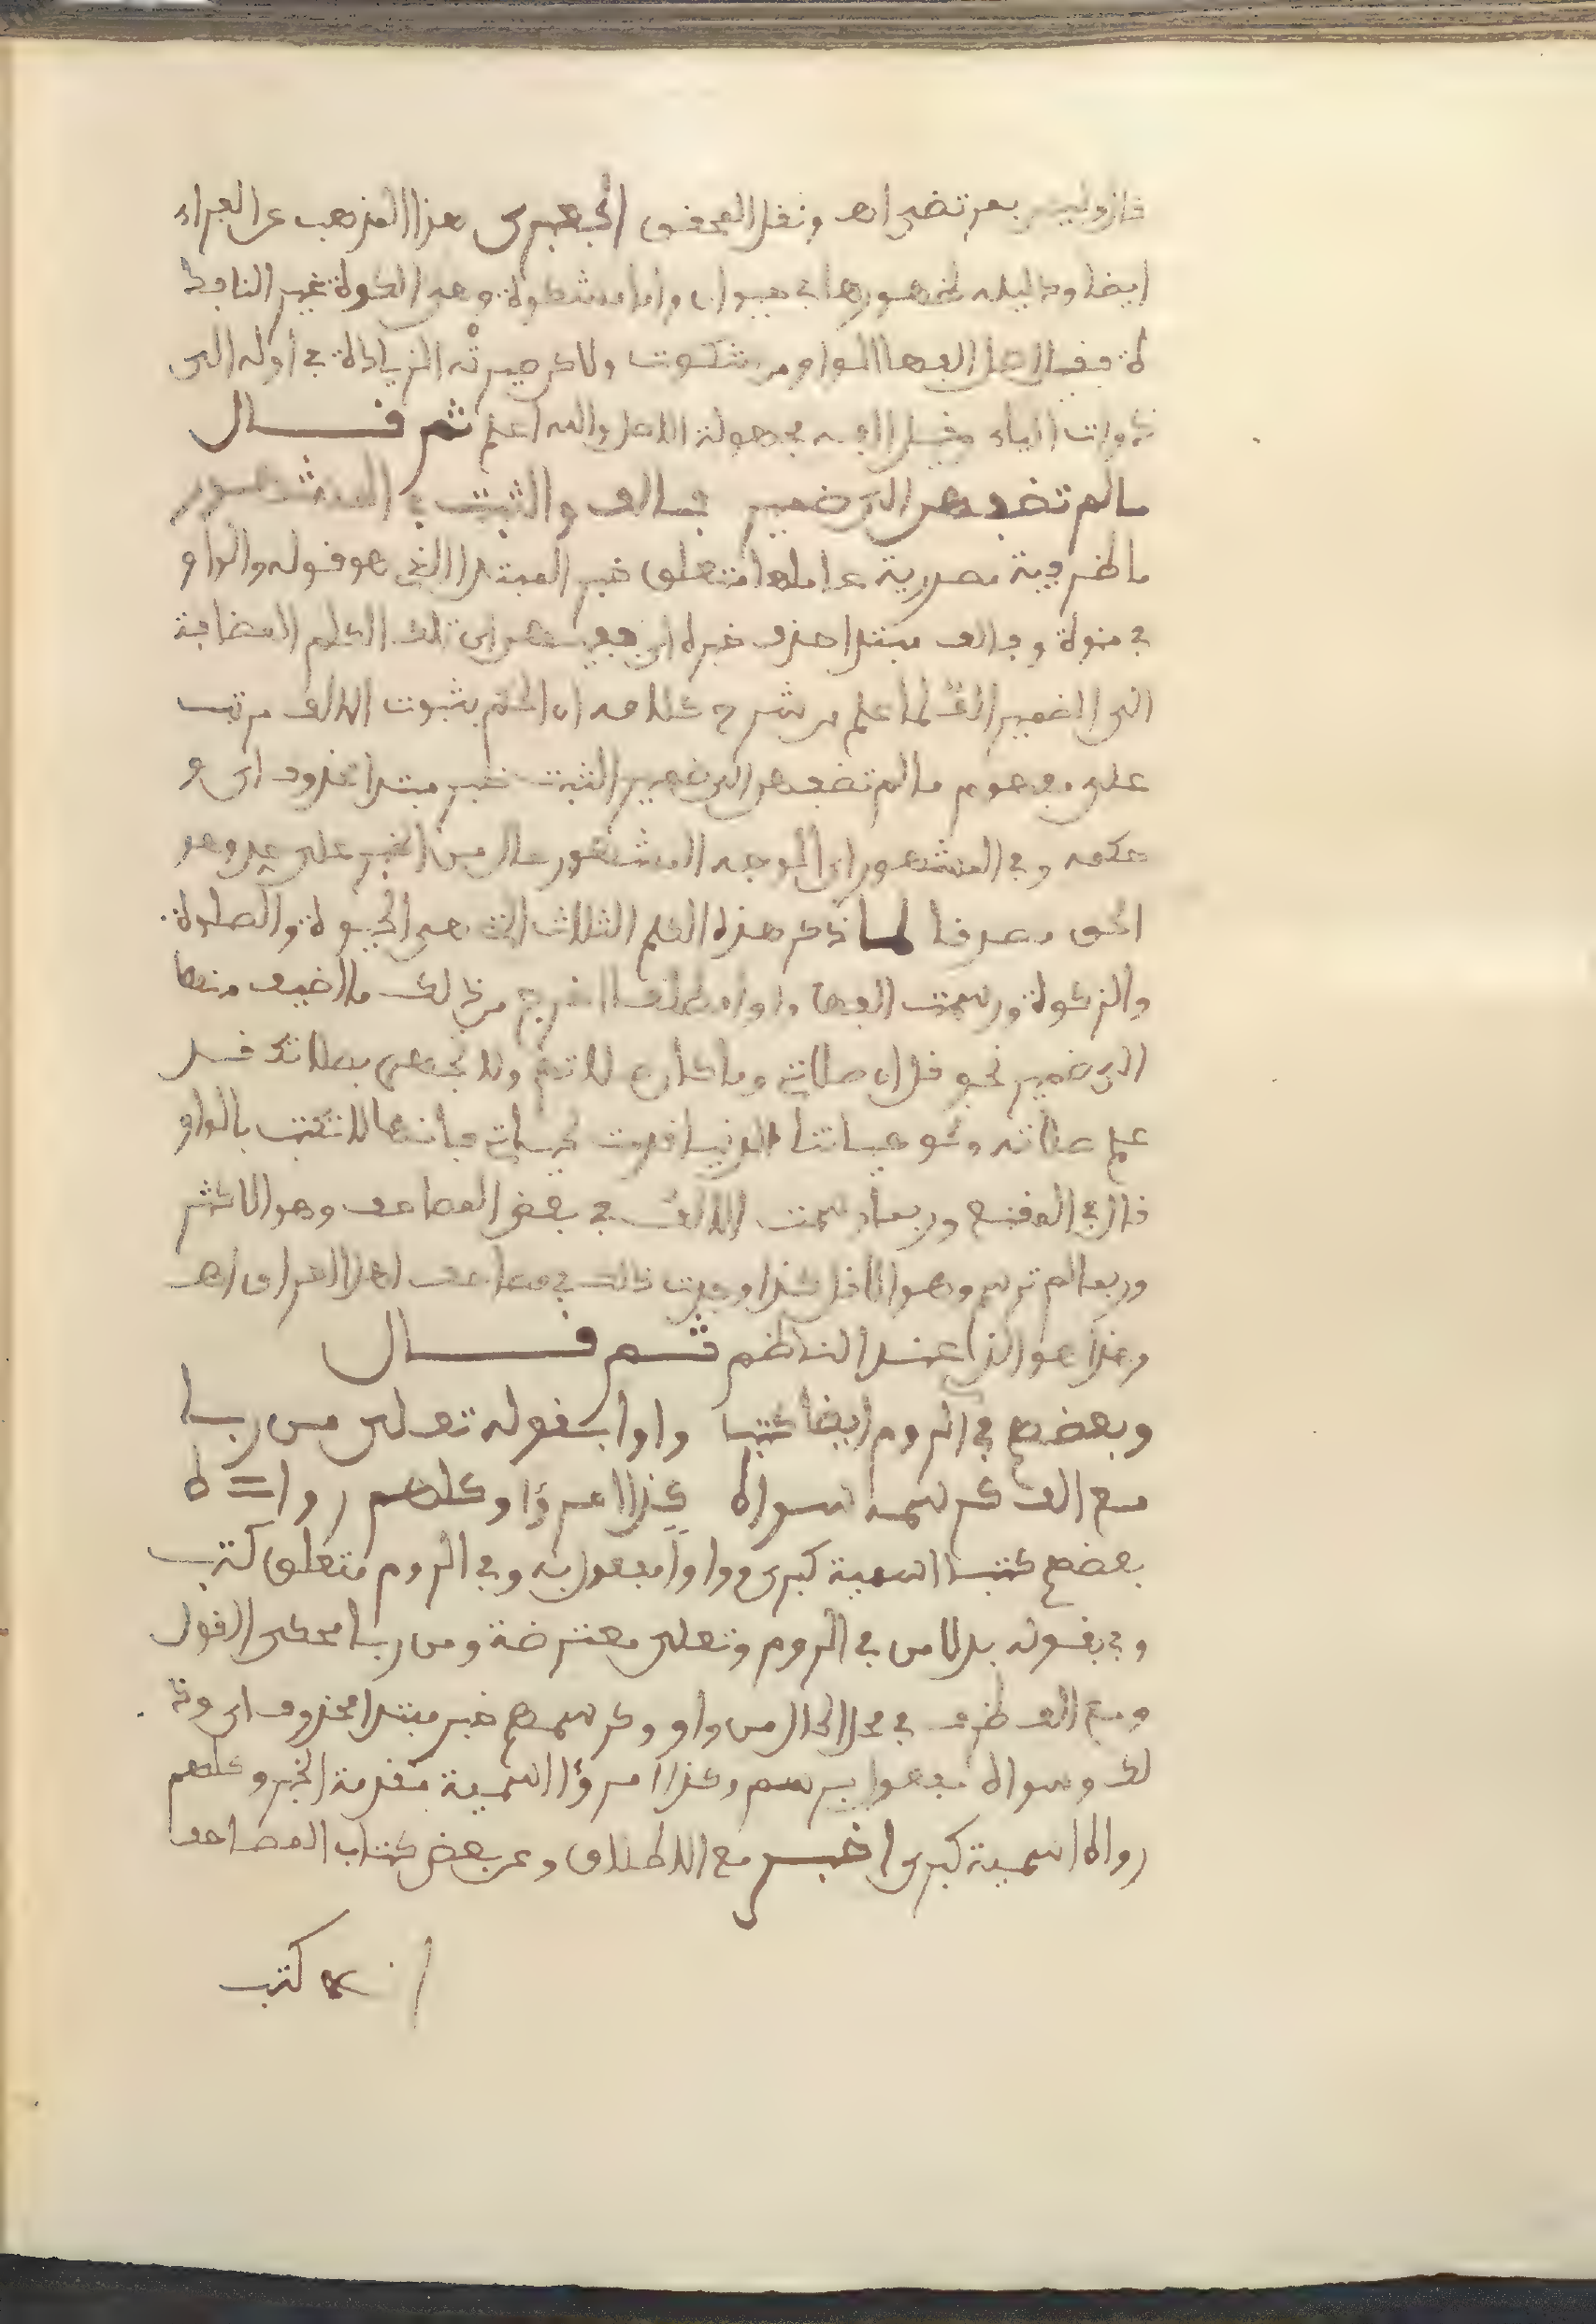 قال وليس بمرتضى اهـ ونقل المحقق الجعبري هذا المذهب عن الفراء
ايضا ودليله ظهورها في حيوان واما مشكوة وهي الكوة غير النافذ
ة فقيل اصل الفها الواو من شكوت ولاكن صيرته الزيادة في اوله الى
ذوات الياء وقيل الفه مجهولة الاصل والله اعلم ثم قال
ما لم تضفهن الى ضمير فالف والثبت في المشهور
ما ظرفية مصدرية عاملها متعلق خبر المبتدا الذي هو قوله والواو
في منوة وفالف مبتدا حذف خبره اي ففيهن اي تلك الكلم المضافة
الى الضمير الف لما علم من شرح كلامه ان الحكم بثبوت الالف مرتب
على مفهوم ما لم تضفهن الى ضمير والثبت خبر مبتدا محذوف اي و
حكمه وفي المشهور اي الوجه المشهور حال من الخبر على حد وهو
الحق مصدقا لما ذكر هذه الكلم الثلاث التي هي الحيوة والصلوة
والزكوة ورسمت الفها واوا مطلقا اخرج من ذالك ما اضيف منها
الى ضمير نحو قل ان صلاتي وما كان صلاتهم ولا تجهر بصلاتك قد
علم صلاته ونحو حياتنا الدنيا قدمت لحياتي فانها لا تكتب بالواو
قال في المقنع وربما رسمت الالف في بعض المصاحف وهو الاكثر
وربما لم ترسم وهو الاقل كذا وجدت ذالك في مصاحف اهل العراق اهـ
وهذا هو الذي عند الناظم ثم قال
وبعضهم في الروم ايضا كتبا واوا بقوله تعلى من ربا
مع الف كرسمه سواه كذا امرؤا وكلهم رواه
بعضهم كتبا اسمية كبرى وواوا مفعول به وفي الروم متعلق كتب
وفي بقوله بدلا من في الروم وتعلى معترضة ومن ربا محكي القول
ومع الف ظرف في محل الحال من واو وكرسمهم خبر مبتدا محذوف اي وذ
لك وسواه مفعول برسم وكذا امرؤا اسمية مقدمة الخبر وكلهم
رواه اسمية كبرى اخبر مع الاطلاق وعن بعض كتاب المصاحف
كتب